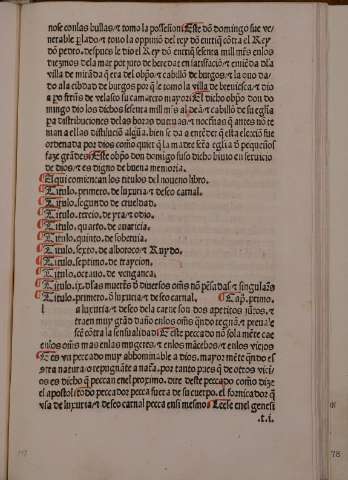 nose con las bullas ⁊ tomo la possesion Este dō domingo fue ve
nerable p̄lado ⁊ tomo la oppiniō del rey dō enriq̄ cōtra el Rey
dō pedro. despues le dio el Rey dō enriq̄ sesenta mill mr̄s en los
diezmos dela mar por juro de heredar en satisfaciō ⁊ emiēda dl'a
villa de mirāda q̄ era del obp̄o ⁊ cabillo de burgos ⁊ la ouo da
do ala cibdad de burgos por q̄ le tomo la villa de breuiesca ⁊ dio
a po frr̄ns de velasco su camarero mayor El dicho obp̄o don do
mingo dio los dichos sesenta mill mr̄s al deā ⁊ cabillo de su eglīa
pa distribuciones delas horas diurnas ⁊ nocturnas q̄ antes no te
nian a ellas distribuciō algūa. bien se da a entēder q̄ esta elecciō fue
ordenada por dios como quier q̄ la madre sctā eglīa d' pequeños
faze grādes Este obp̄o don domingo fuso dicho biuio en seruicio
de dios ⁊ es digno de buena memoria.
Aqui comiencan los titulos del noueno libro.
Titulo. primero. de luxuria ⁊ deseo carnal.
Titulo. segundo de crueldad.
Titulo. tercio. de yra ⁊ odio.
Titulo. quarto. de auaricia.
Titulo. quinto. de soberuia.
Titulo. sexto. de alboroto ⁊ Ruydo.
Titulo. septimo. de traycion.
Titulo. octauo. de vengança.
Titulo. ix. dl'as muertes d' diuersos om̄s nō pēsadas ⁊ singulars
Titulo. primero. d' luxuria ⁊ deseo carnal. Cap. primo.
l a luxuria ⁊ deseo dela carne son dos apetitos juntos. ⁊
traen muy grād daño en los om̄s qn̄do regnā ⁊ preuale
scē contra la sensualidad Este peccado nō sola mēte cae
en los om̄s mas en las mugeres ⁊ en los mācebos ⁊ en los viejos
E es vn peccado muy abhominable a dios. mayor mēte qn̄do es
cōtra natura o repugnāte a natā. por tanto pues q̄ de otros vici
os es dicho q̄ peccan en el proximo. dire deste peccado como dize
el apostol todo peccador pecca fuera de su cuerpo. el fornicador q̄
vsa de luxuria ⁊ deseo carnal pecca en si mesmo Leese en el genesi
t. i.
78